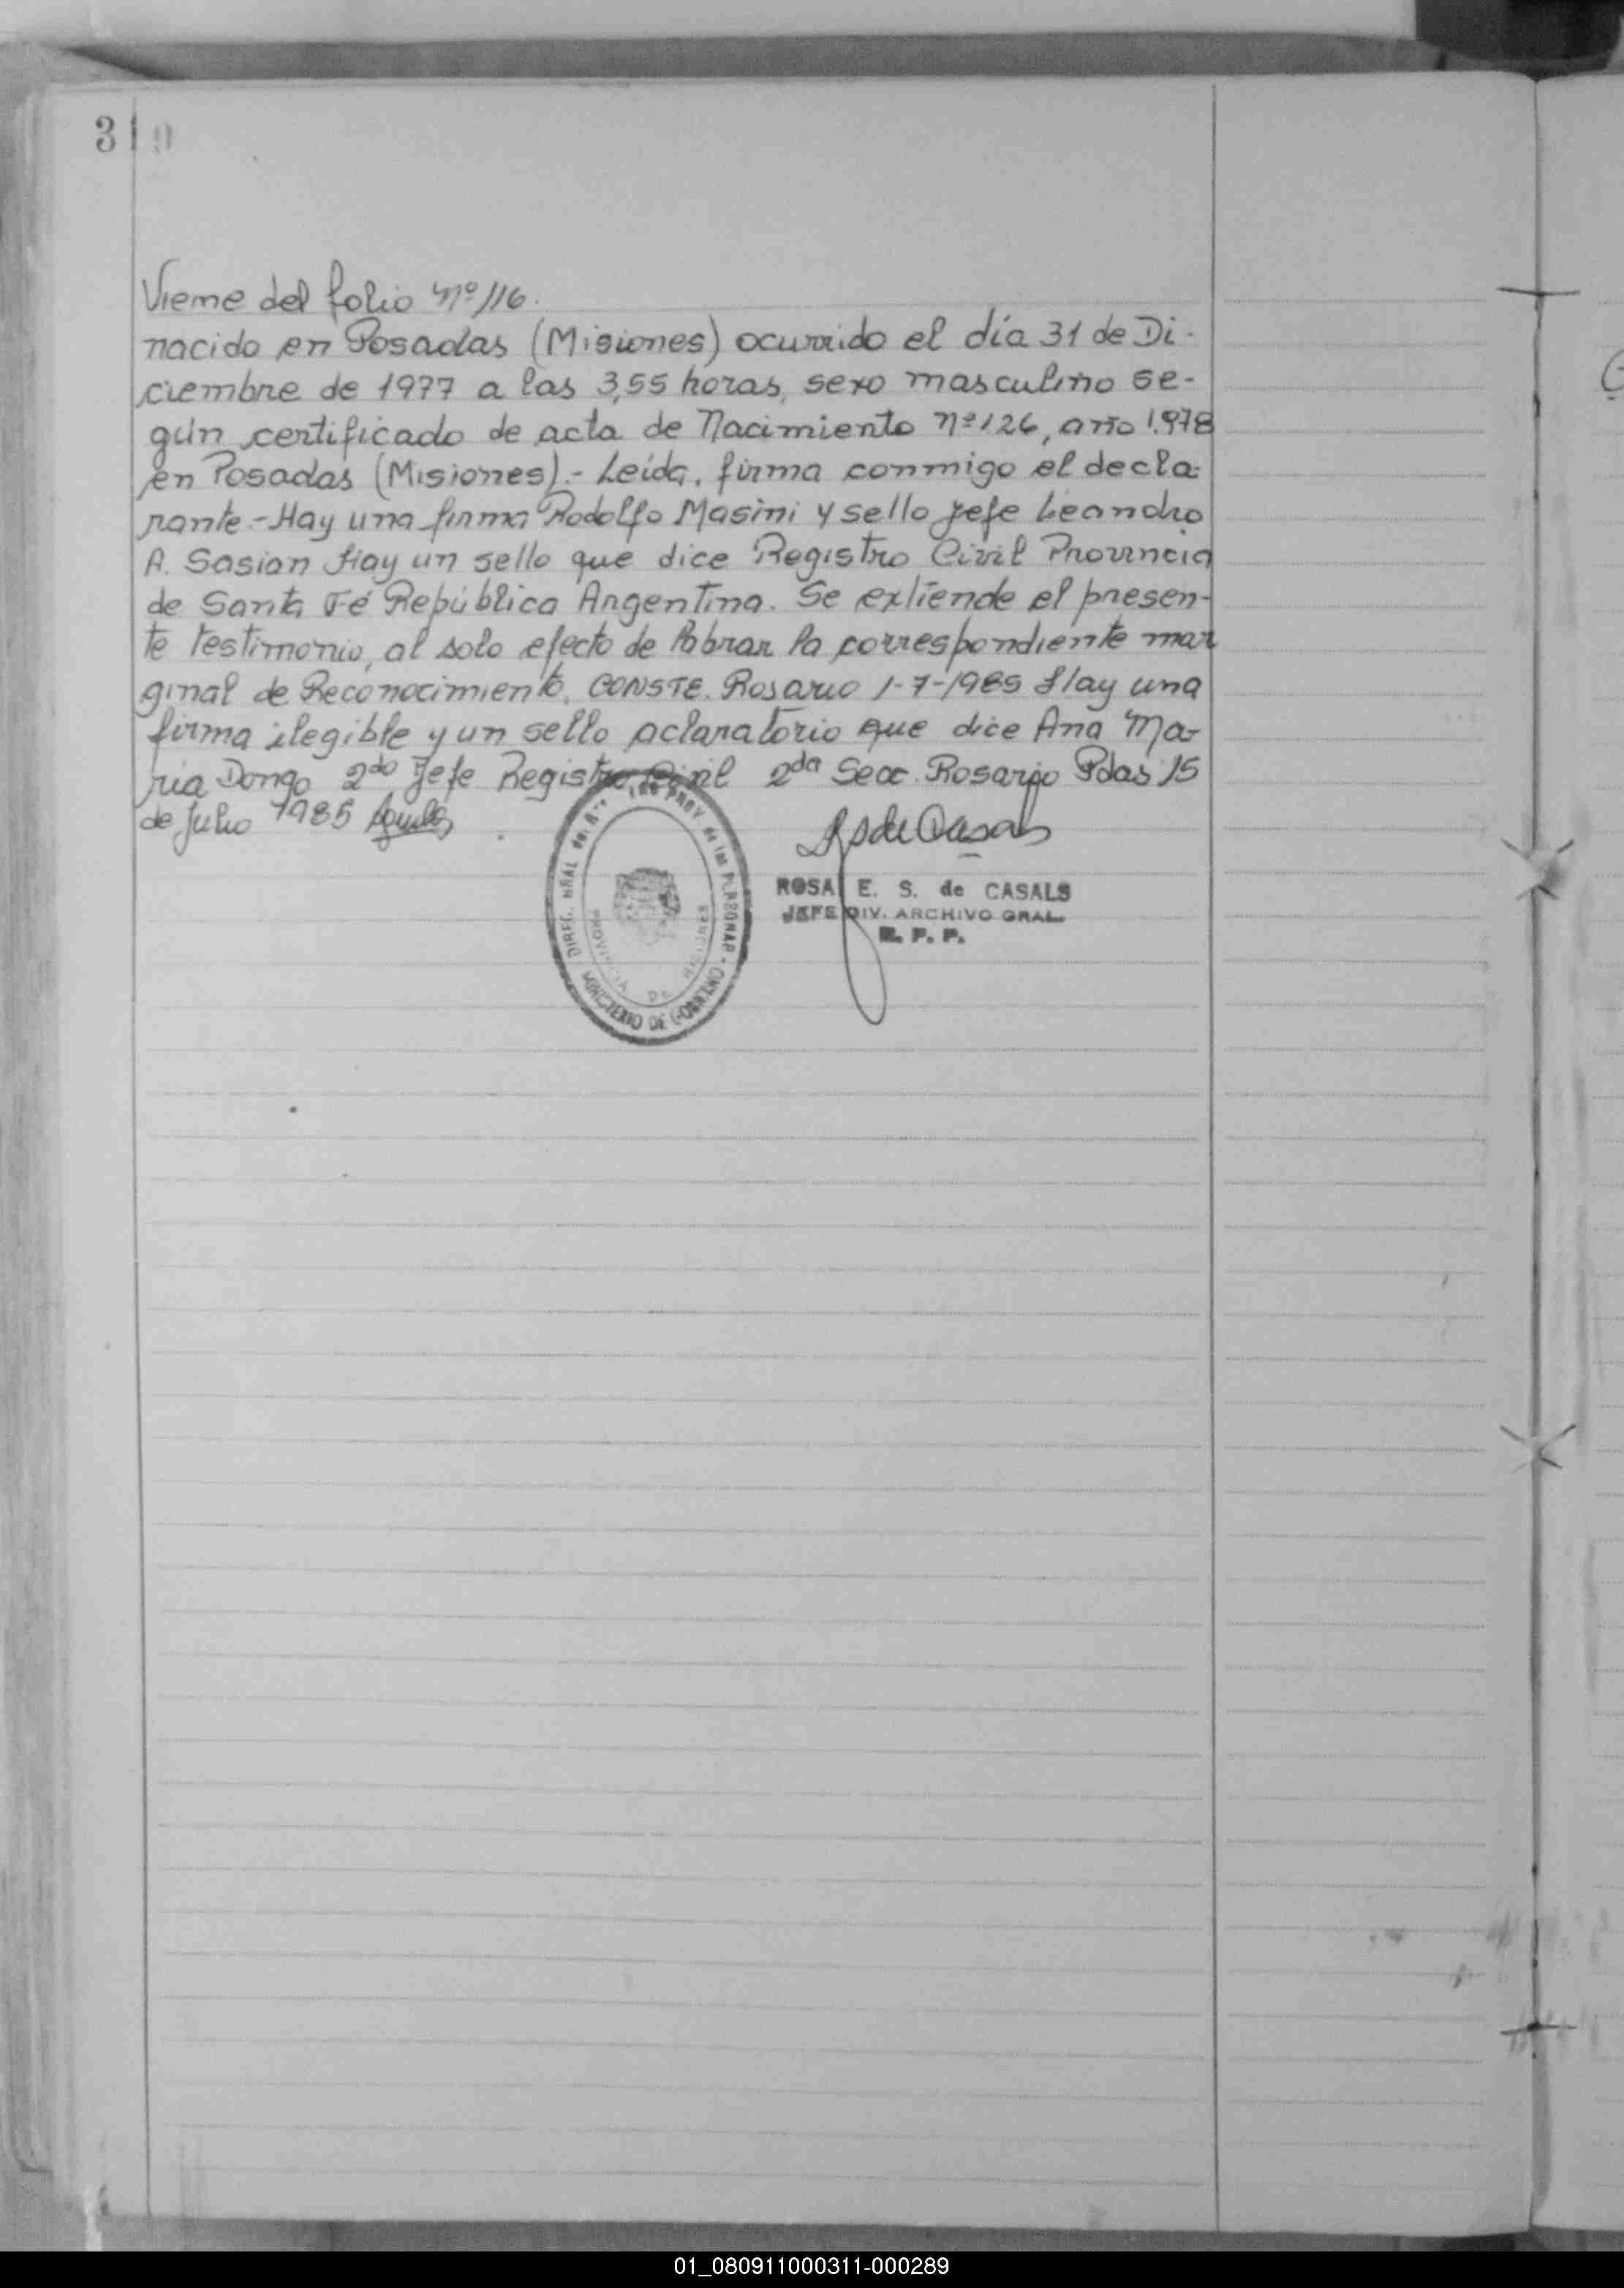 319
Viene del folio Nº 116.
nacido en Posadas (Misiones) ocurrido el día 31 de Di-
ciembre de 1977 a las 3,55 horas, sexo masculino se-
gún certificado de acta de Nacimiento Nº 126, año 1.978
en Posadas (Misiones).- Leída, firma conmigo el decla-
rante.- Hay una firma Rodolfo Masini y sello Jefe Leandro
A. Sasian Hay un sello que dice Registro Civil Provincia
de Santa Fé República Argentina. Se extiende el presen-
te testimonio, al solo efecto de labrar la correspondiente mar
ginal de Reconocimiento, CONSTE. Rosario 1-7-1985 Hay una
firma ilegible y un sello aclaratorio que dice Ana Ma-
ria Dongo 2do Jefe Registro Civil 2da Secc. Rosario Pdas 15
de Julio 1985
ROSA E. S. de CASALS
JEFE DIV. ARCHIVO GRAL.
R. P. P.
PROVINCIA DE MISIONES
MINISTERIO DE GOBIERNO
01_080911000311-000289